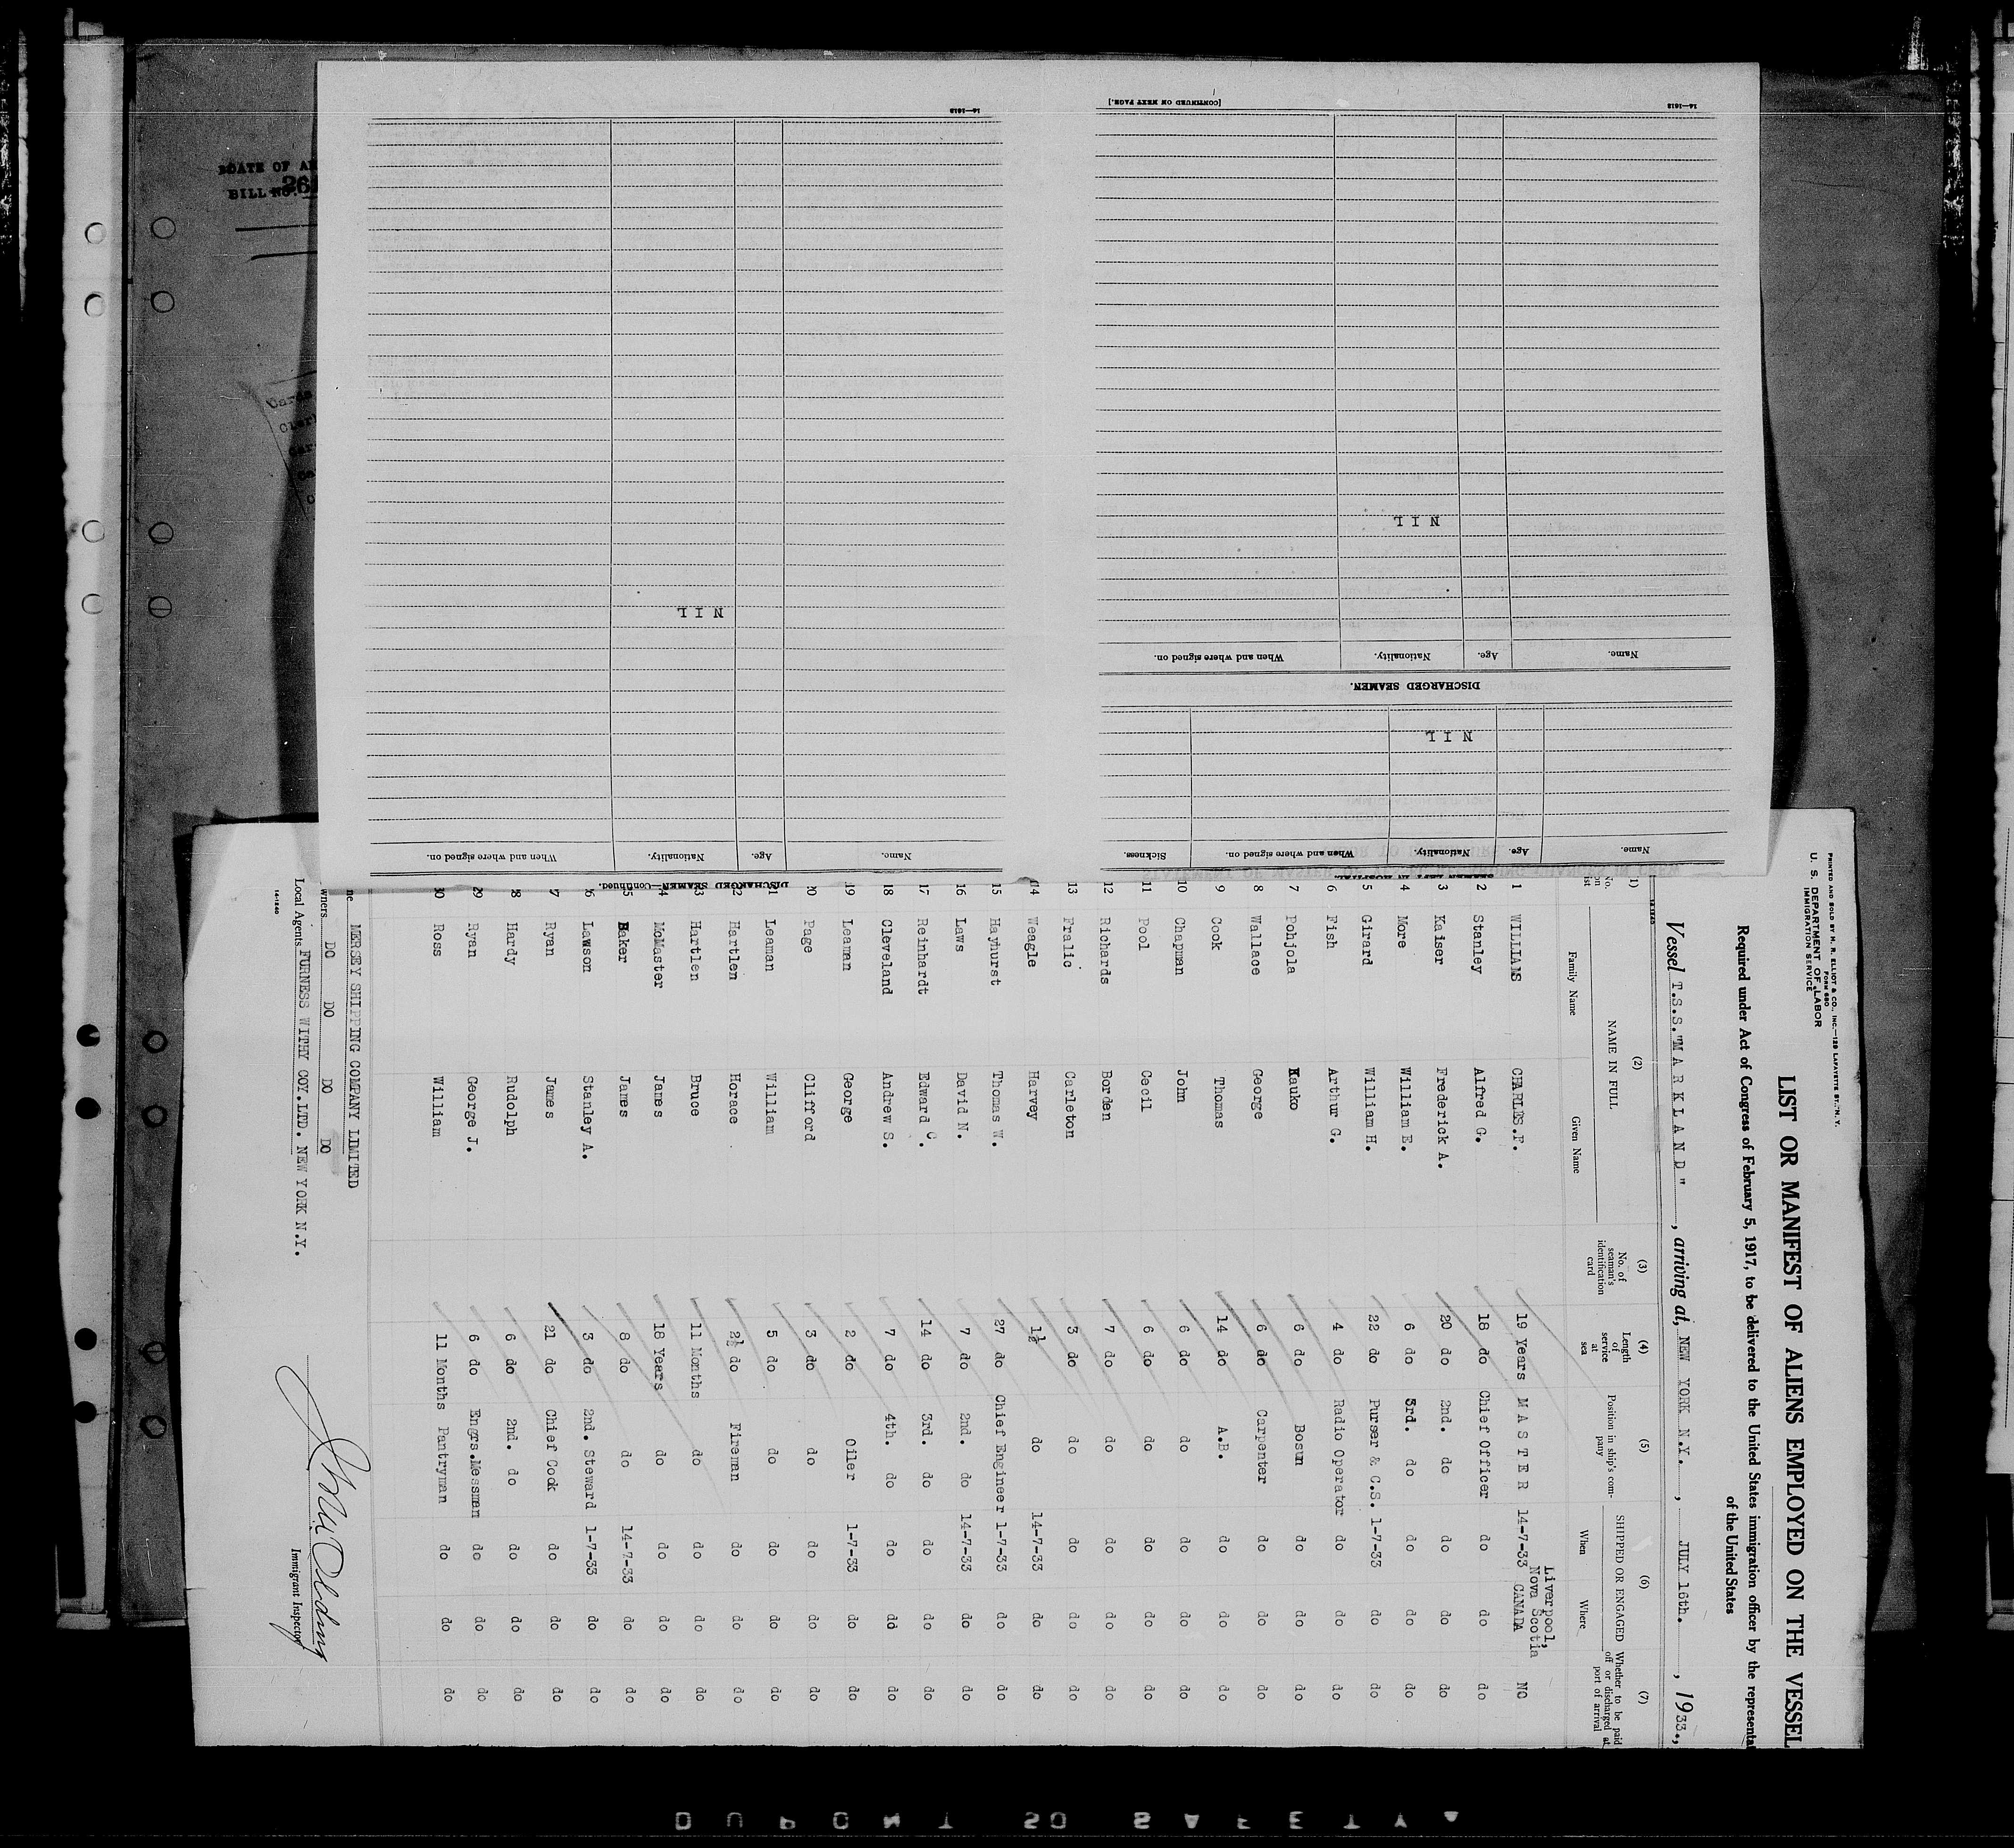 PRINTED AND SOLD BY H. R. ELLIOT & CO., INC.—129 LAFAYETTE ST., N.Y.
FORM 680
U. S. DEPARTMENT OF LABOR
IMMIGRATION SERVICE
LIST OR MANIFEST OF ALIENS EMPLOYED ON THE VESSEL
Required under Act of Congress of February 5, 1917, to be delivered to the United States immigration officer by the
of the United States
Vessel T.S.S."M A R K L A N D", arriving at, NEW YORK N.Y., JULY 16th., 1933.,
(2) (3) (4) (5) (6) (7)
NAME IN FULL
Family Name Given Name
No. of seaman's identification card
Length of service at sea
Position in ship's com-pany
SHIPPED OR ENGAGED
When Where
Whether to be paid off or discharged at port of arrival
Liverpool,
Nova Scotia
1 WILLIAMS CHARLES.P. 19 Years M A S T E R 14-7-33 CANADA NO
2 Stanley Alfred G. 18 do Chief Officer do do do
3 Kaiser Frederick A. 20 do 2nd. do do do do
4 More William E. 6 do 3rd. do do do do
5 Girard William H. 22 do Purser & C.S. 1-7-33 do do
6 Fish Arthur G. 4 do Radio Operator do do do
7 Pohjola Kauko 6 do Bosun do do do
8 Wallace George 6 do Carpenter do do do
9 Cook Thomas 14 do A.B. do do do
10 Chapman John 6 do do do do do
11 Pool Cecil 6 do do do do do
12 Richards Borden 7 do do do do do
13 Fralic Carleton 3 do do do do do
14 Weagle Harvey 1½ do 14-7-33 do do
15 Hayhurst Thomas W. 27 do Chief Engineer 1-7-33 do do
16 Laws David N. 7 do 2nd. do 14-7-33 do do
17 Reinhardt Edward C. 14 do 3rd. do do do do
18 Cleveland Andrew S. 7 do 4th. do do dd do
19 Leaman George 2 do Oiler 1-7-33 do do
20 Page Clifford 3 do do do do do
21 Leaman William 5 do do do do do
22 Hartlen Horace 2½ do Fireman do do do
23 Hartlen Bruce 11 Months do do do do
24 McMaster James 18 Years do do do do
25 Baker James 8 do do 14-7-33 do do
26 Lawson Stanley A. 3 do 2nd. Steward 1-7-33 do do
27 Ryan James 21 do Chief Cook do do do
28 Hardy Rudolph 6 do 2nd. do do do do
29 Ryan George J. 6 do Engrs.Messman do do do
30 Ross William 11 Months Pantryman do do do
MERSEY SHIPPING COMPANY LIMITED
DO DO DO DO
Local Agents FURNESS WITHY COY.LTD. NEW YORK N.Y.
Immigrant Inspector
14-1240
Name. Age. Nationality. When and where signed on. Sickness.
N I L
DISCHARGED SEAMEN.
Name. Age. Nationality. When and where signed on.
N I L
14—1618
[CONTINUED ON NEXT PAGE.]
DISCHARGED SEAMEN—Continued.
Name. Age. Nationality. When and where signed on.
N I L
14—1618
BILL NO.
DUPONT SO SAFETY